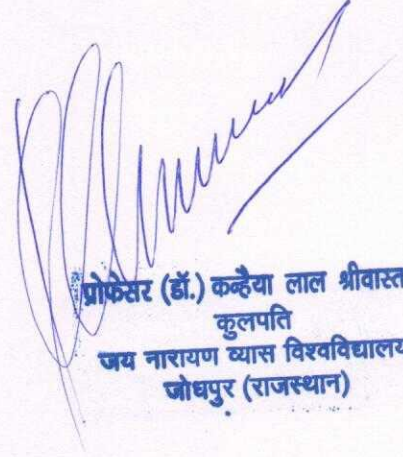 प्रोफेसर (डॉ.) कन्हैया लाल श्रीवास्त
कुलपति
जय नारायण व्यास विश्वविद्यालय
जोधपुर (राजस्थान)